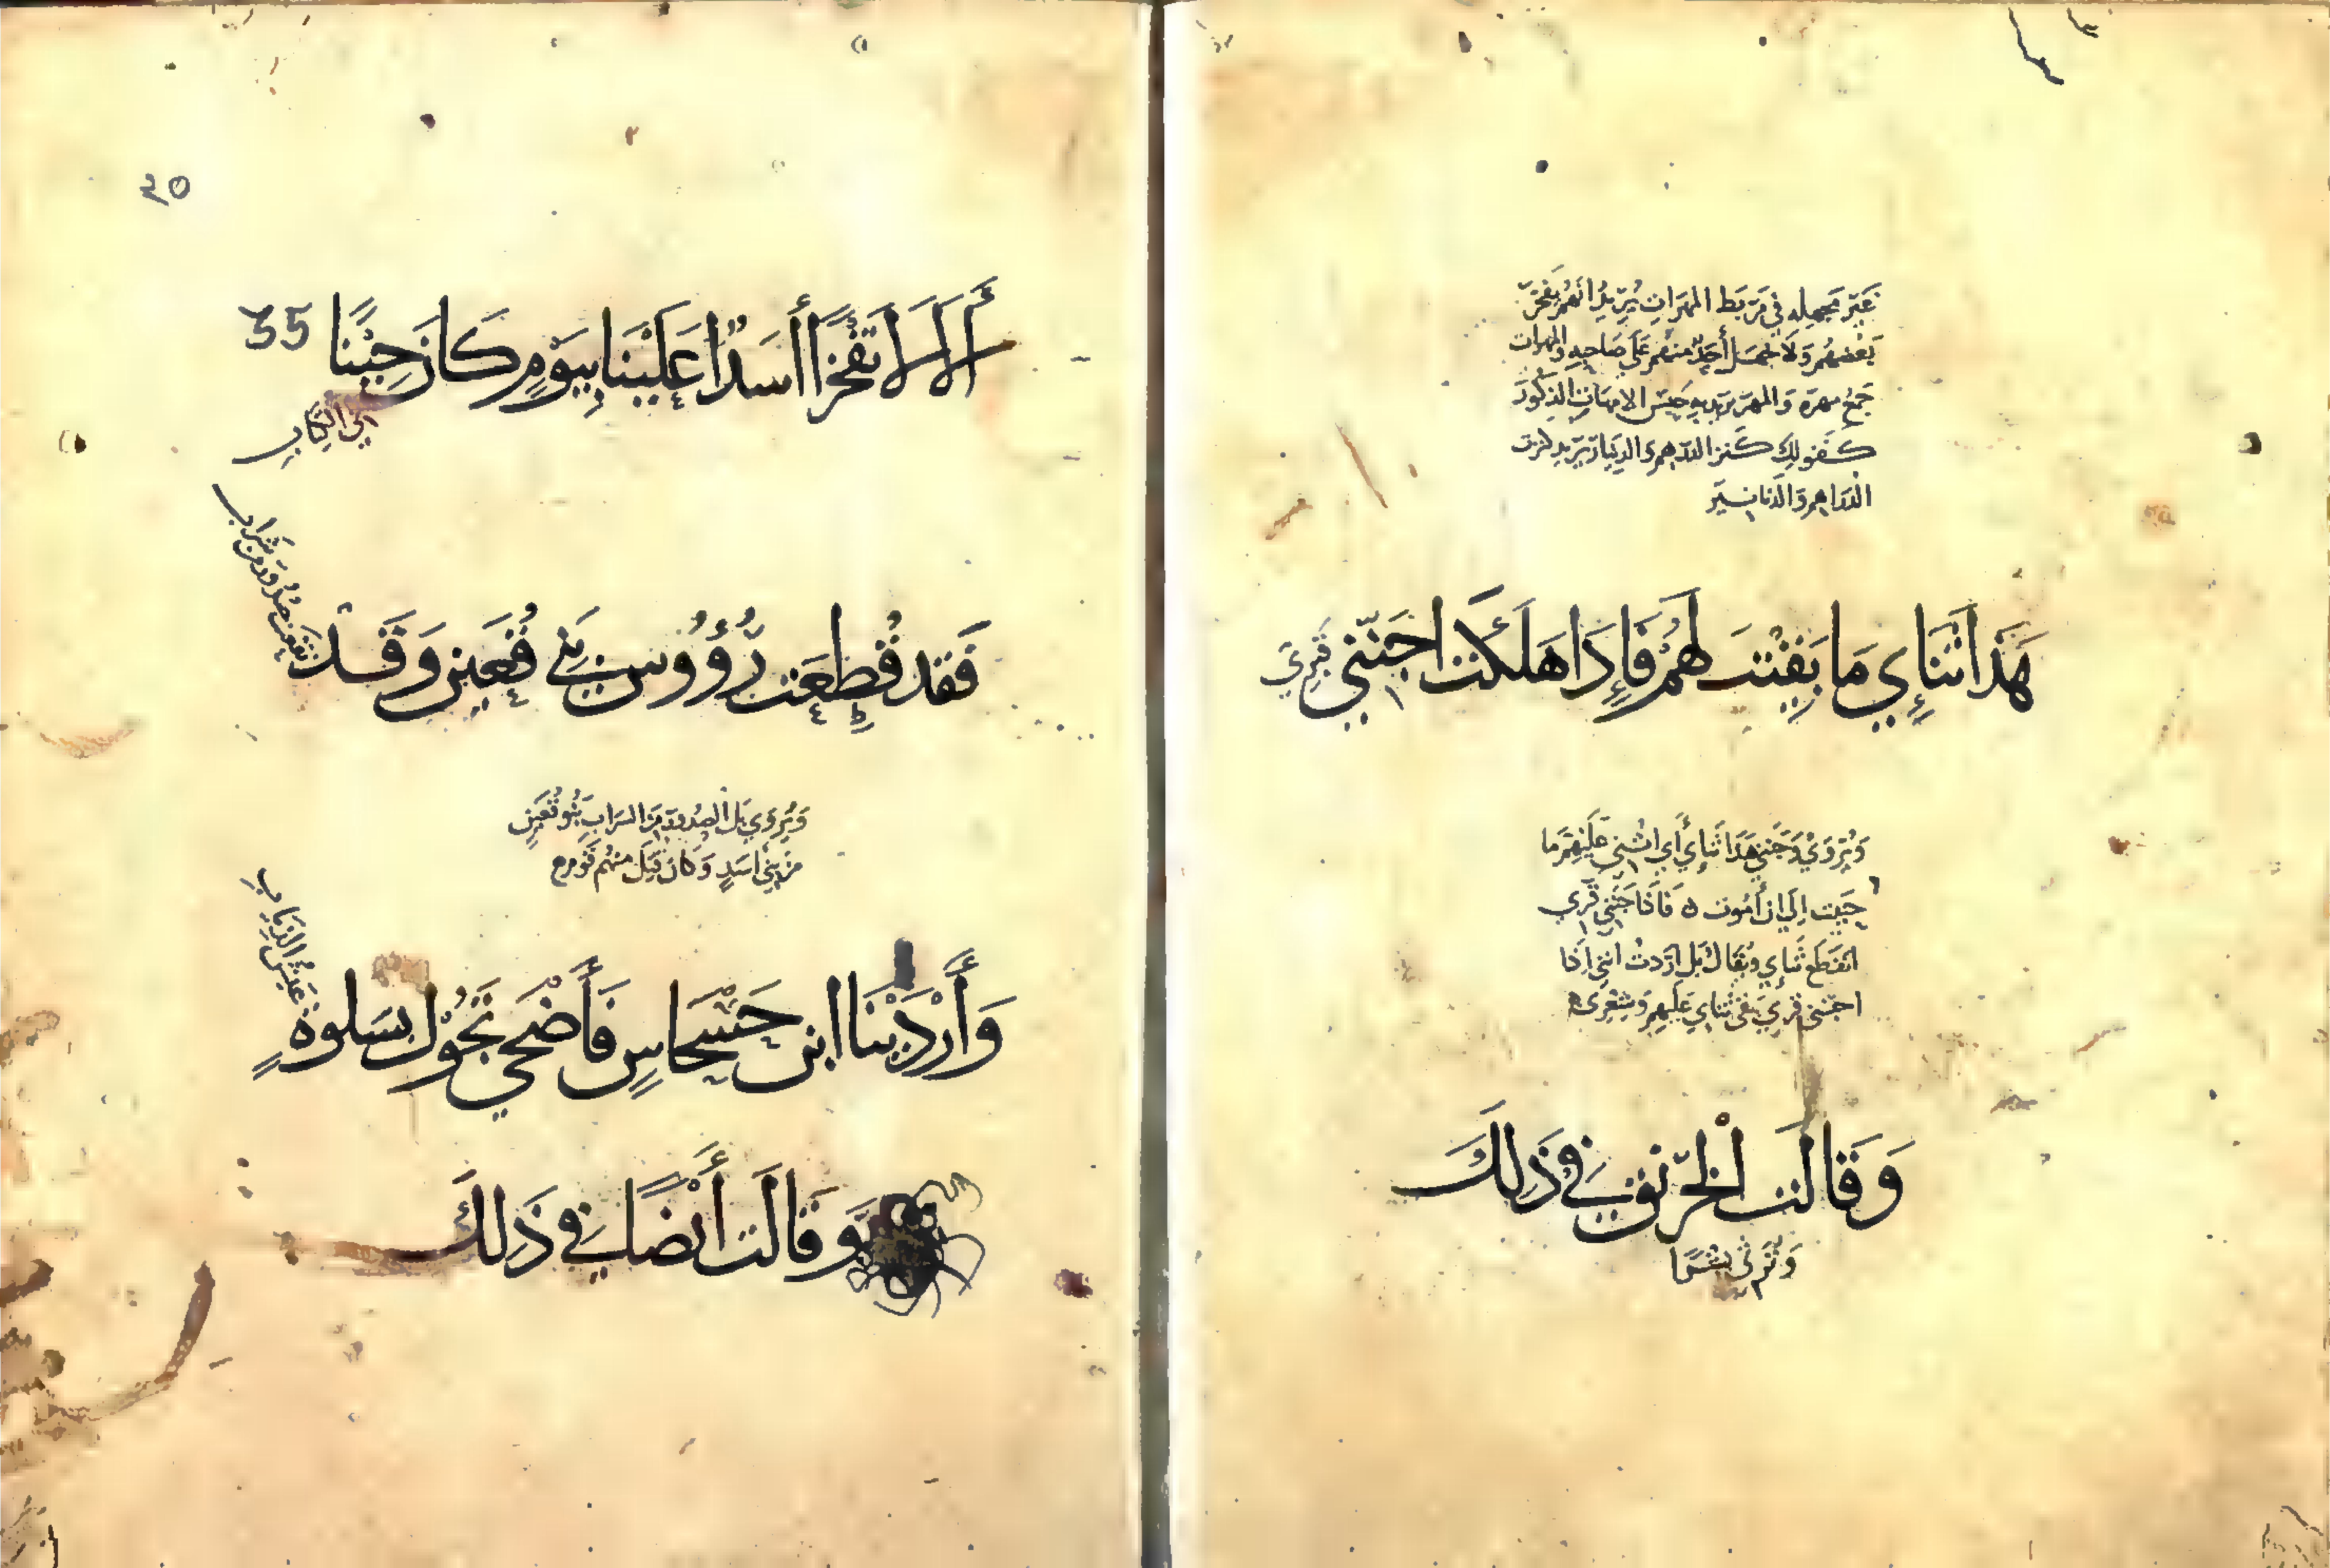 غير مجهله في مربط المهرات يريد انهم يفخر
بعضهم ولا يجهل أحد منهم على صاحبه والمهرات
جمع مهره والمهر يريد به جنس الامهات الذكور
كقولك كنز الدرهم والدينار تريد كنزت
الدراهم والدنانير
هذا ثنائي ما بقيت لهم فإذا هلكت اجنني قبري
ويروي وجنني هذا ثنائي أي اثني عليهم ما
حييت إلي ان أموت ه فاذا جنني قبري
انقطع ثنائي ويقال بل اردت انني اذا
اجنني قبري بقى ثنائي عليهم وشعري
وقالت الخرنق في ذلك
وترثي بشرا
٣٥
ألا لا تفخرا أسد علينا بيوم كان حينا 35
في الكتاب
فقد قطعت رؤوس من قعين وقد
نقعت صدور من شراب
ويروي بل الصدور من الشراب بنو قعين
من بني اسد وكان قتل منهم قوم
وأردينا ابن حسحاس فأضحى تجول بسلوة
غبش الذياب
وقالت أيضا في ذلك